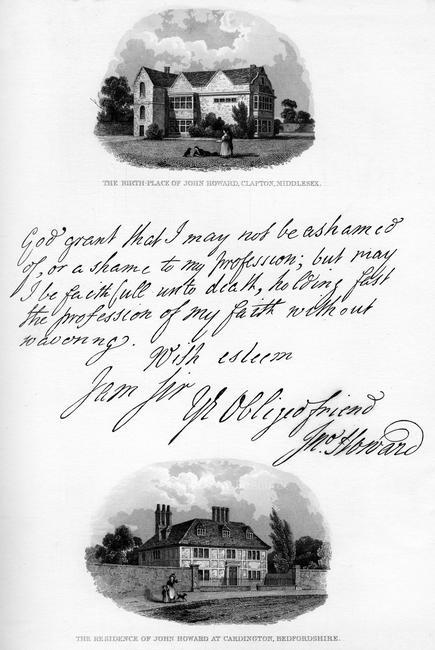 THE BIRTH-PLACE OF JOHN HOWARD, CLAPTON, MIDDLESEX.
God grant that I may not be ashamed
of, or a shame to my profession; but may
I be faithfull unto death, holding fast
the profession of my faith without
wavering.
With esteem
I am Sir
Yr Obliged friend
Jno. Howard
THE RESIDENCE OF JOHN HOWARD AT CARDINGTON, BEDFORDSHIRE.